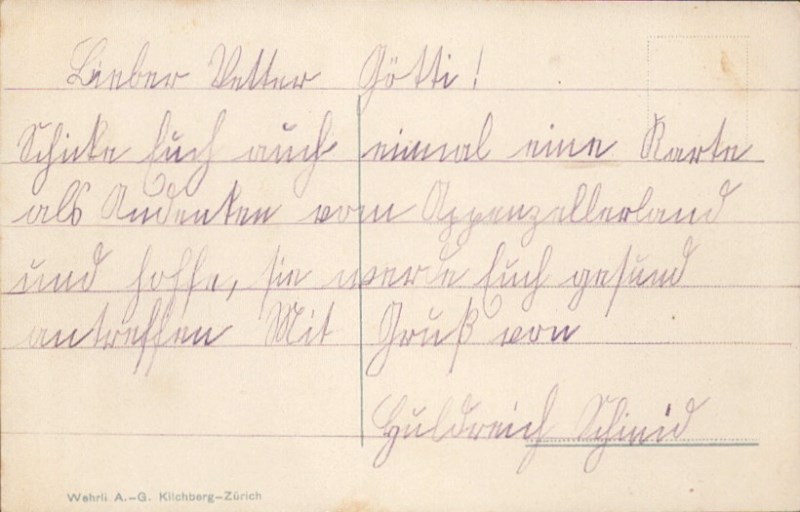 Lieber Vetter Götti!
Schicke Euch auch einmal eine Karte
als Andenken vom Appenzellerland
und hoffe, sie werde Euch gesund
antreffen Mit Gruß von
Huldreich Schmid
Wehrli A.-G. Kilchberg-Zürich